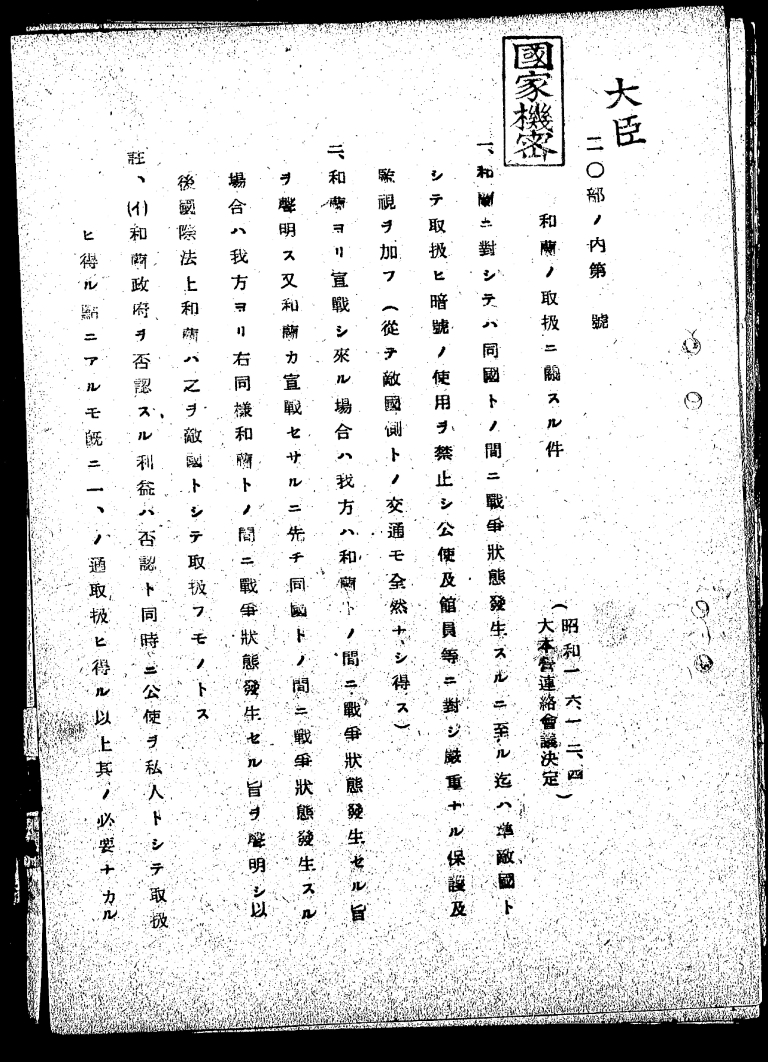 大臣
國家機密
二〇部ノ内第　號
和蘭ノ取扱ニ關スル件
（昭和一六一二、四
大本營連絡會議決定）
一、和蘭ニ對シテハ同國トノ間ニ戰爭狀態發生スルニ至ル迄ハ準敵國ト
シテ取扱ヒ暗號ノ使用ヲ禁止シ公使及館員等ニ對シ嚴重ナル保護及
監視ヲ加フ（從テ敵國側トノ交通モ全然ナシ得ス）
二、和蘭ヨリ宣戰シ來ル場合ハ我方ハ和蘭トノ間ニ戰爭狀態發生セル旨
ヲ聲明ス又和蘭カ宣戰セサルニ先チ同國トノ間ニ戰爭狀態發生スル
場合ハ我方ヨリ右同樣和蘭トノ間ニ戰爭狀態發生セル旨ヲ聲明シ以
後國際法上和蘭ハ之ヲ敵國トシテ取扱フモノトス
註、(イ)和蘭政府ヲ否認スル利益ハ否認ト同時ニ公使ヲ私人トシテ取扱
ヒ得ル點ニアルモ既ニ一、ノ通取扱ヒ得ル以上其ノ必要ナカル